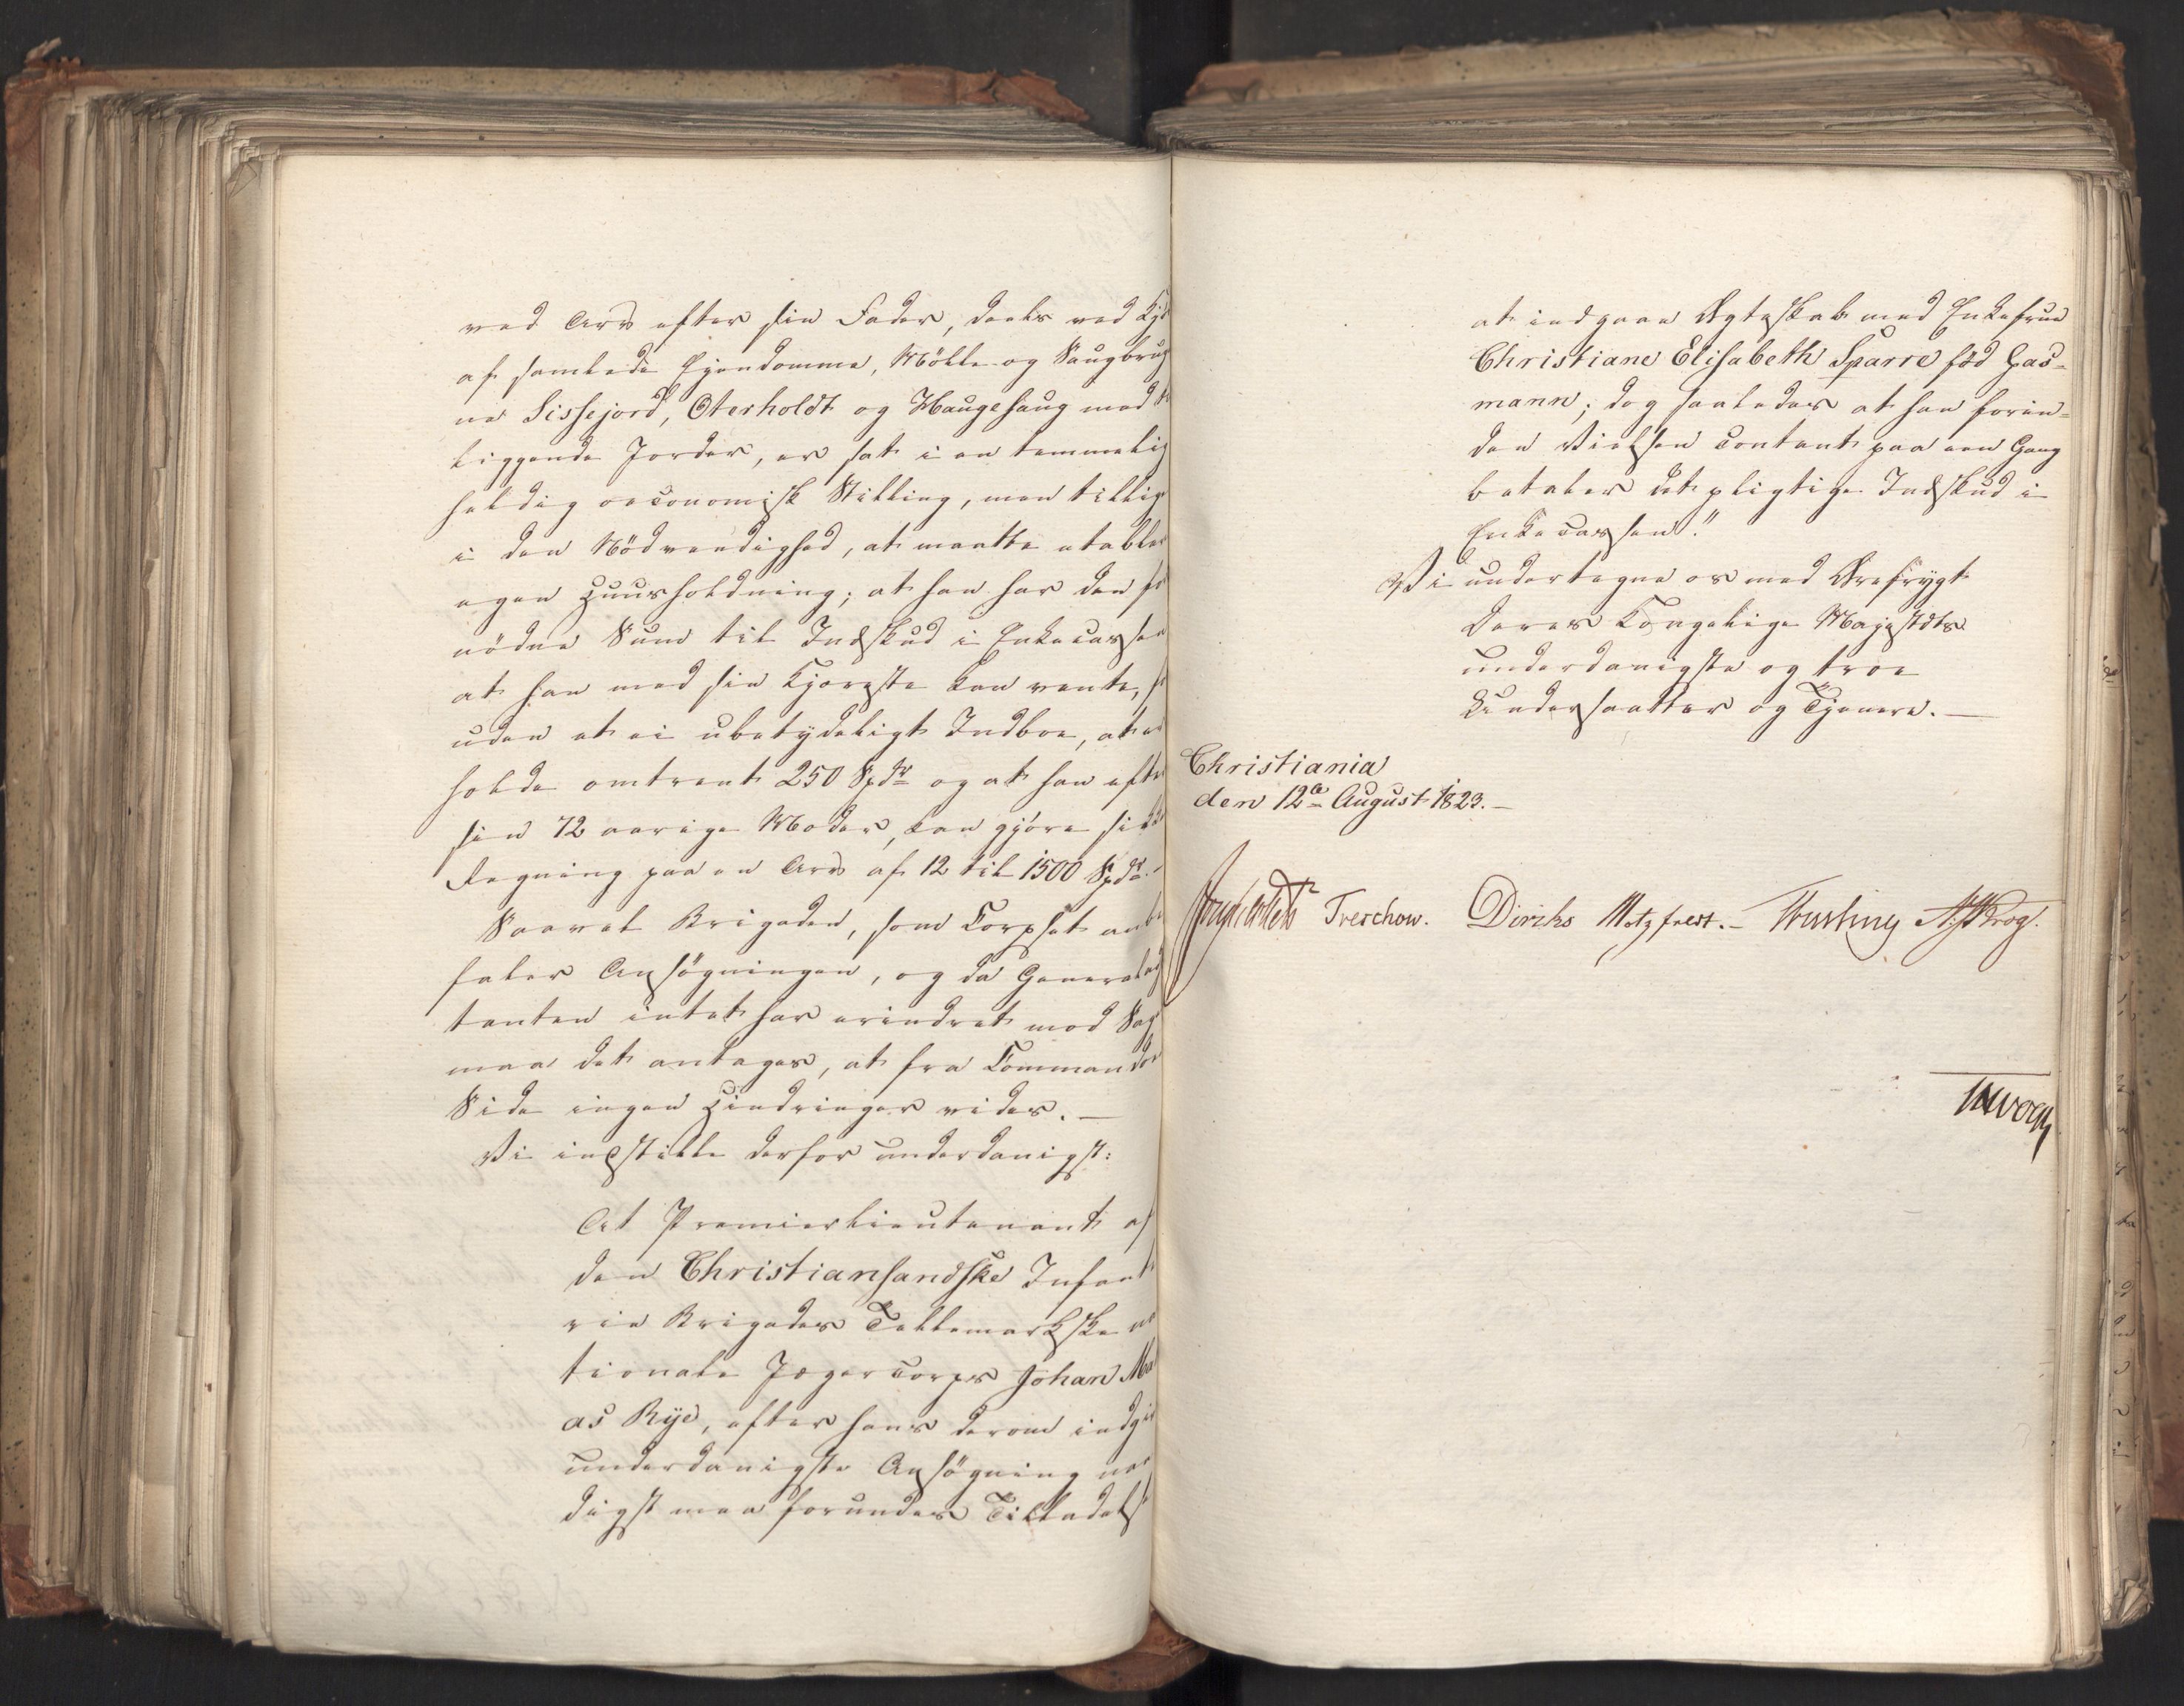 ved Arv efter sin Fader, deels ved Kjö
af samlede Ejendomme, Mölle og Saugbrug
ne Sissejord, Oterholdt og Haugehaug med
liggende Jorder, er sat i en temmelig
heldig oeconomisk Stilling, men tillige
i den Nödvendighed, at maatte etable
egen Huusholdning; at han har den for
nödne Sum til Indskud i Enkecassen
at han med sin Kjæreste kan vente,
uden et ei ubetydeligt Indboe, at er
holde omtrent 250 Spdr og at han efter
sin 72 aarige Moder, kan gjöre sikker
Regning paa en Arv af 12 til 1500 Spdr.
Saavel Brigaden, som Corpset anbe
faler Ansögningen, og da Generaladj
tanten intet har erindret mod Sag
maa det antages, at fra Commando
Side ingen Hindringer vides. —
Vi indstille derfor underdanigst:
At Premierlieutenant af
den Christiansandske Infant
rie Brigades Tellemarkske na
tionale Jægercorps Johan Ma
as Rye, efter hans derom indgi
underdanigste Ansögning naa
digst maa forundes Tilladelse
at indgaae Ægteskab med Enkefrue
Christiane Elisabeth Sparre föd Gas-
mann; dog saaledes at han foren-
den Vielsen contant paa een Gang
betaler det pligtige Indskud i
Enkecassen."
Vi undertegne os med Ærefrygt
Deres Kongelige Majestæts
underdanigste og troe
Undersaatter og Tjenere. —
Christiania
den 12te August 1823. —
Treschow. Diriks Motzfeldt. — Fasting Krog.